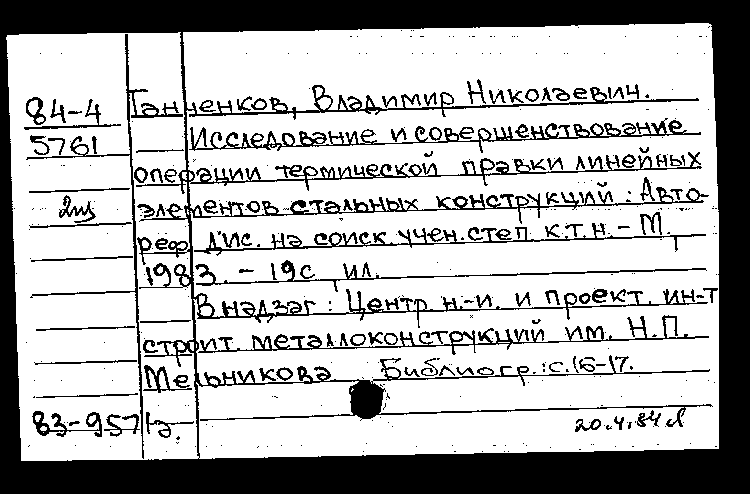 84-4 Ганненков, Владимир Николаевич.
5761 Исследование и совершенствование
операции термической правки линейных
2нз элементов стальных конструкций : Авто-
реф. дис. на соиск. учен. степ. к.т.н. - М.,
1983. - 19с., ил.
В надзаг: Центр. н.-и. и проект. ин-т
строит. металлоконструкций им. Н.П.
Мельникова Библиогр.: с.16-17.
83-9571а. 20.4.84